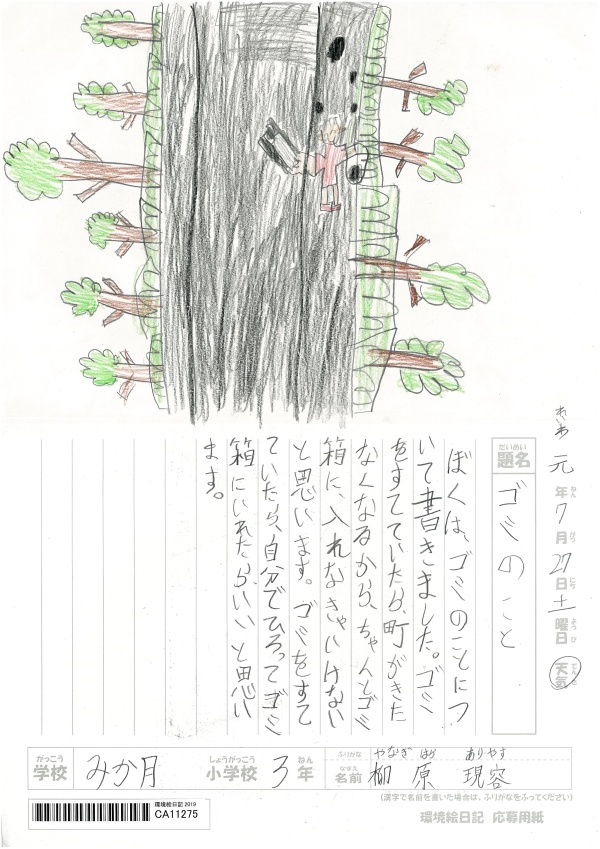 れいわ 元年7月27日土曜日 天気
題名 ゴミのこと
ぼくは、ゴミのことにつ
いて書きました。ゴミ
をすてていたら、町がきた
なくなるから、ちゃんとゴミ
箱に、入れなきゃいけない
と思います。ゴミをすて
ていたら、自分でひろってゴミ
箱にいれたら、いいと思い
ます。
がっこう しょうがっこう ねん
学校 みか月 小学校 3年
ふりがな やなぎ はら ありやす
なまえ
名前 柳原 現容
(漢字で名前を書いた場合は、ふりがなをふってください)
環境絵日記 2019
CA11275
環境絵日記 応募用紙